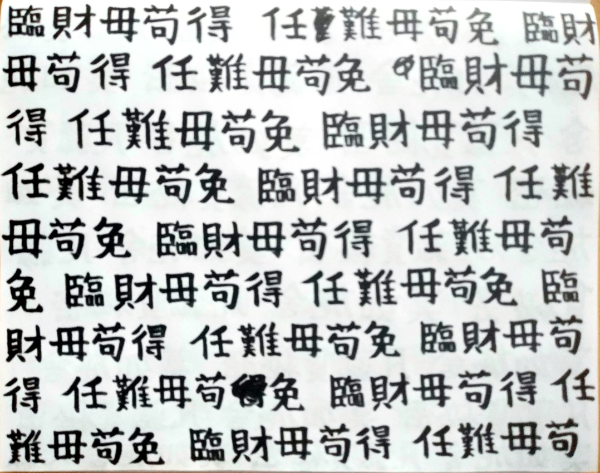 臨財毋苟得 任難毋苟免 臨財
毋苟得 任難毋苟免 臨財毋苟
得 任難毋苟免 臨財毋苟得
任難毋苟免 臨財毋苟得 任難
毋苟免 臨財毋苟得 任難毋苟
免 臨財毋苟得 任難毋苟免 臨
財毋苟得 任難毋苟免 臨財毋苟
得 任難毋苟免 臨財毋苟得 任
難毋苟免 臨財毋苟得 任難毋苟